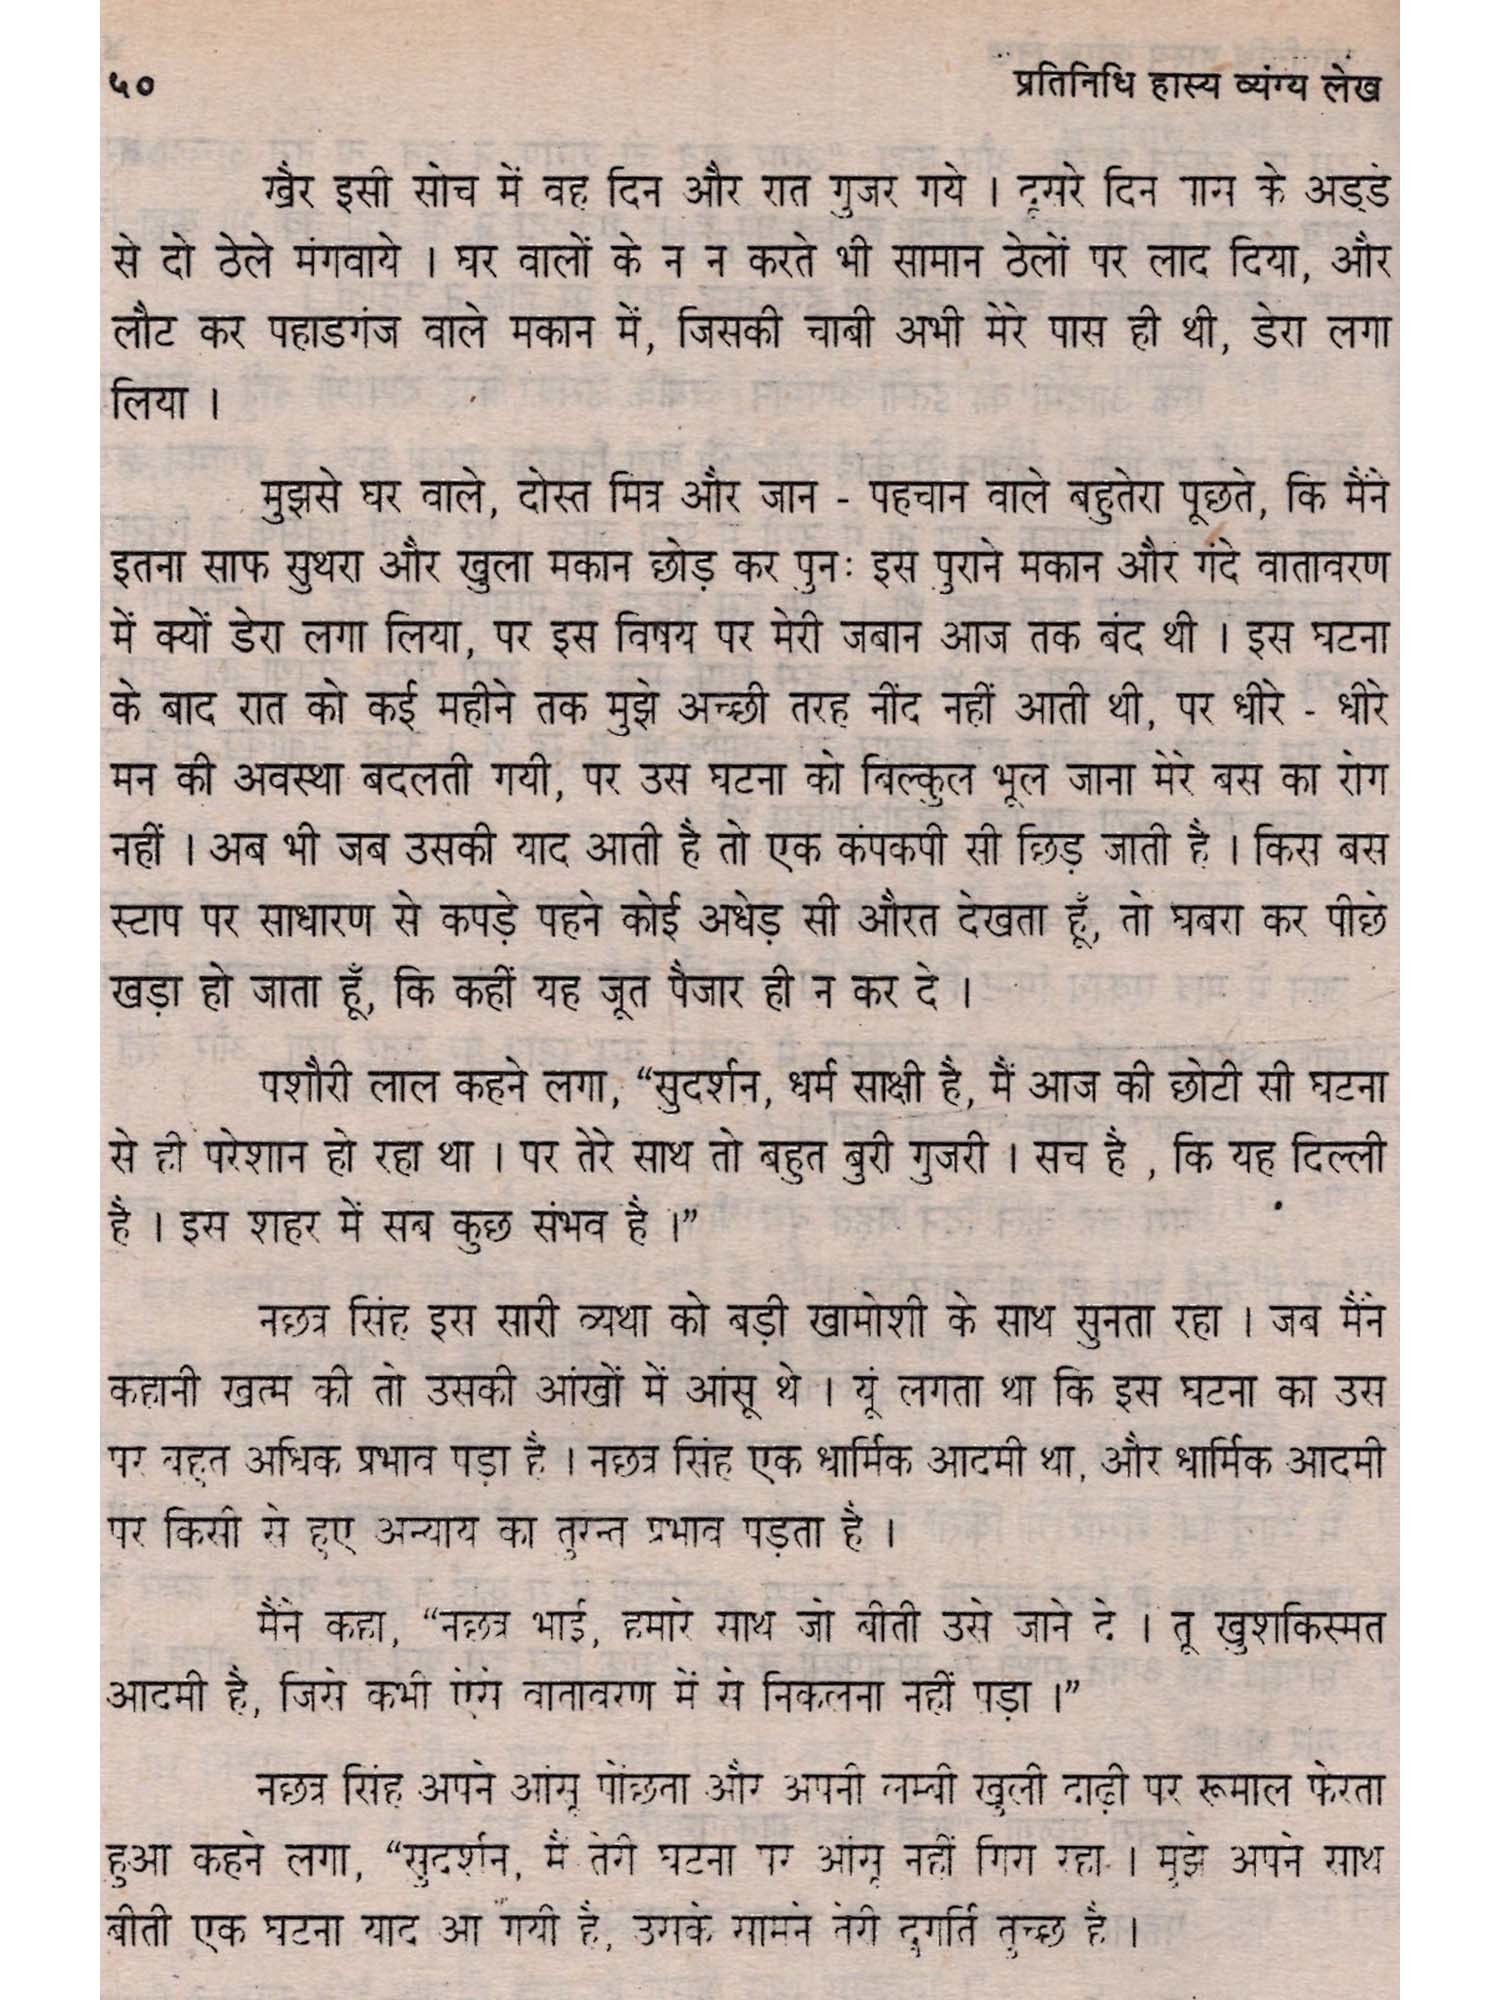 ५०
प्रतिनिधि हास्य व्यंग्य लेख
खैर इसी सोच में वह दिन और रात गुजर गये । दूसरे दिन पास के अड्डे
से दो ठेले मंगवाये । घर वालों के न न करते भी सामान ठेलों पर लाद दिया, और
लौट कर पहाडगंज वाले मकान में, जिसकी चाबी अभी मेरे पास ही थी, डेरा लगा
लिया ।
मुझसे घर वाले, दोस्त मित्र और जान - पहचान वाले बहुतेरा पूछते, कि मैंने
इतना साफ सुथरा और खुला मकान छोड़ कर पुनः इस पुराने मकान और गंदे वातावरण
में क्यों डेरा लगा लिया, पर इस विषय पर मेरी जबान आज तक बंद थी । इस घटना
के बाद रात को कई महीने तक मुझे अच्छी तरह नींद नहीं आती थी, पर धीरे - धीरे
मन की अवस्था बदलती गयी, पर उस घटना को बिल्कुल भूल जाना मेरे बस का रोग
नहीं । अब भी जब उसकी याद आती है तो एक कंपकपी सी छिड़ जाती है । किस बस
स्टाप पर साधारण से कपड़े पहने कोई अधेड़ सी औरत देखता हूँ, तो घबरा कर पीछे
खड़ा हो जाता हूँ, कि कहीं यह जूत पैजार ही न कर दे ।
पशौरी लाल कहने लगा, “सुदर्शन, धर्म साक्षी है, मैं आज की छोटी सी घटना
से ही परेशान हो रहा था । पर तेरे साथ तो बहुत बुरी गुजरी । सच है , कि यह दिल्ली
है । इस शहर में सब कुछ संभव है ।”
नछत्र सिंह इस सारी व्यथा को बड़ी खामोशी के साथ सुनता रहा । जब मैंने
कहानी खत्म की तो उसकी आंखों में आंसू थे । यूं लगता था कि इस घटना का उस
पर बहुत अधिक प्रभाव पड़ा है । नछत्र सिंह एक धार्मिक आदमी था, और धार्मिक आदमी
पर किसी से हुए अन्याय का तुरन्त प्रभाव पड़ता है ।
मैंने कहा, “नछत्र भाई, हमारे साथ जो बीती उसे जाने दे । तू खुशकिस्मत
आदमी है, जिसे कभी ऐसे वातावरण में से निकलना नहीं पड़ा ।”
नछत्र सिंह अपने आंसू पोंछता और अपनी लम्बी खुली दाढ़ी पर रूमाल फेरता
हुआ कहने लगा, “सुदर्शन, मैं तेरी घटना पर आंसू नहीं गिरा रहा । मुझे अपने साथ
बीती एक घटना याद आ गयी है, उसके सामने तेरी दुगर्ति तुच्छ है ।